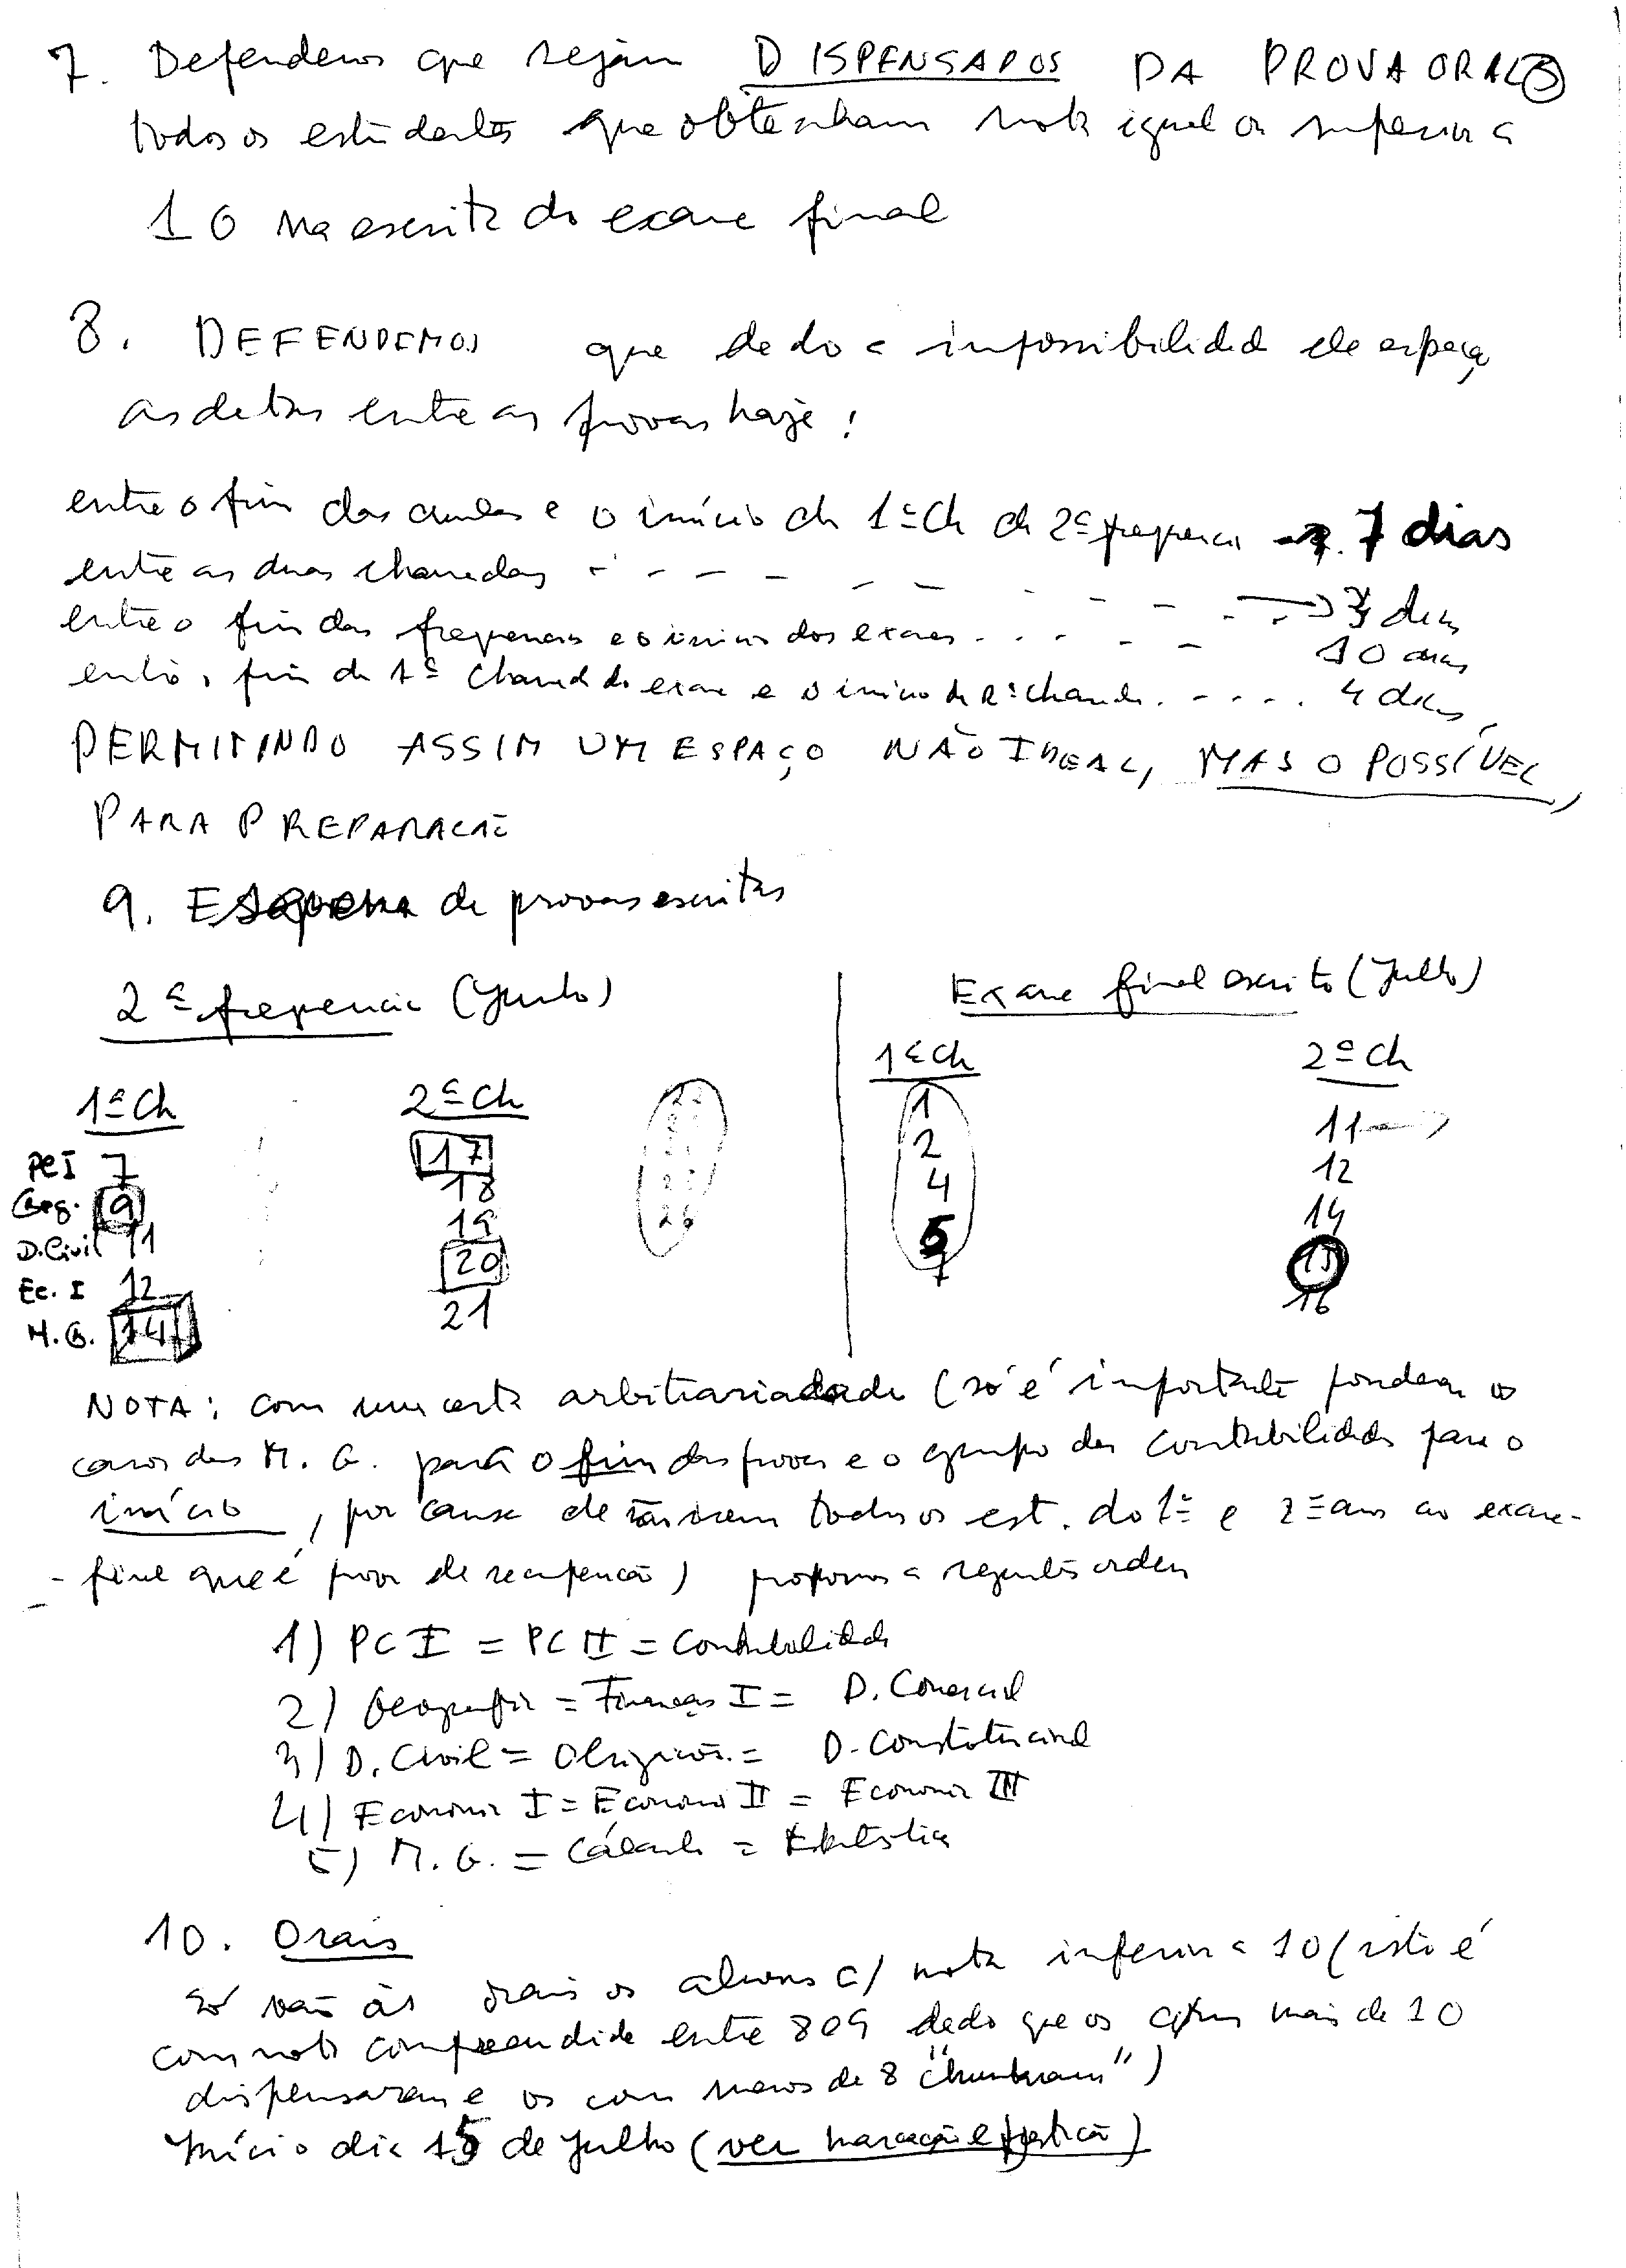 7. Defendemos que sejam DISPENSADOS DA PROVA ORAL ③
todos os estudantes que obtenham nota igual ou superior a
10 na escrita do exame final
8. DEFENDEMOS que dado a impossibilidade de espaçar
as datas entre as provas haja:
entre o fim das aulas e o início da 1ª Ch da 2ª frequência → 7 dias
entre as duas chamadas - - - - - - - → 3 dias
entre o fim das frequencias e o inicio dos exames . . . - - - 10 dias
entre o fim da 1ª chamada do exame e o inicio da 2ª chamada. - . . . 4 dias,
PERMITINDO ASSIM UM ESPAÇO NÃO IDEAL, MAS O POSSÍVEL,
PARA PREPARAÇÃO
9. Esquema de provas escritas
2ª frequencia (Junho)
Exame final escrito (Julho)
1ª Ch 2ª Ch
1ª Ch 2ª Ch
PC I 7 17 1 11
Geg. 9 18 2 12
D. Civil 11 19 4 14
Ec. I 12 20 5 15
M. G. 14 21 7 16
26
NOTA: com uma certa arbitrariadade (só é importante ponderar os
casos das M. G. para o fim das provas e o grupo das contabilidades para o
início, por causa de não irem todos os est. do 1º e 2º ano ao exame-
- final que é prova de recuperação) propomos a seguinte ordem
1) PC I = PC II = Contabilidade
2) Geografia = Finanças I = D. Comercial
3) D. Civil = Obrigações = D. Constitucional
4) Economia I = Economia II = Economia III
5) M. G. = Cálculo = Estatística
10. Orais
só vão às orais os alunos c/ nota inferior a 10 (isto é
com nota compreendida entre 8 e 9 dado que os c/ mais de 10
dispensaram e os com menos de 8 "chumbaram")
Início dia 15 de Julho (ver marcação e justificação)